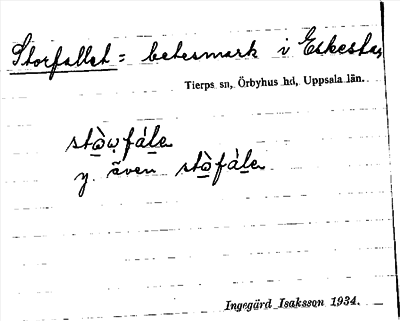 Storfallet = betesmark i Eskesta,
Tierps sn, Örbyhus hd, Uppsala län.
stɷ̀ɷ̣fále
y. även stɷ̀fále
Ingegärd Isaksson 1934.